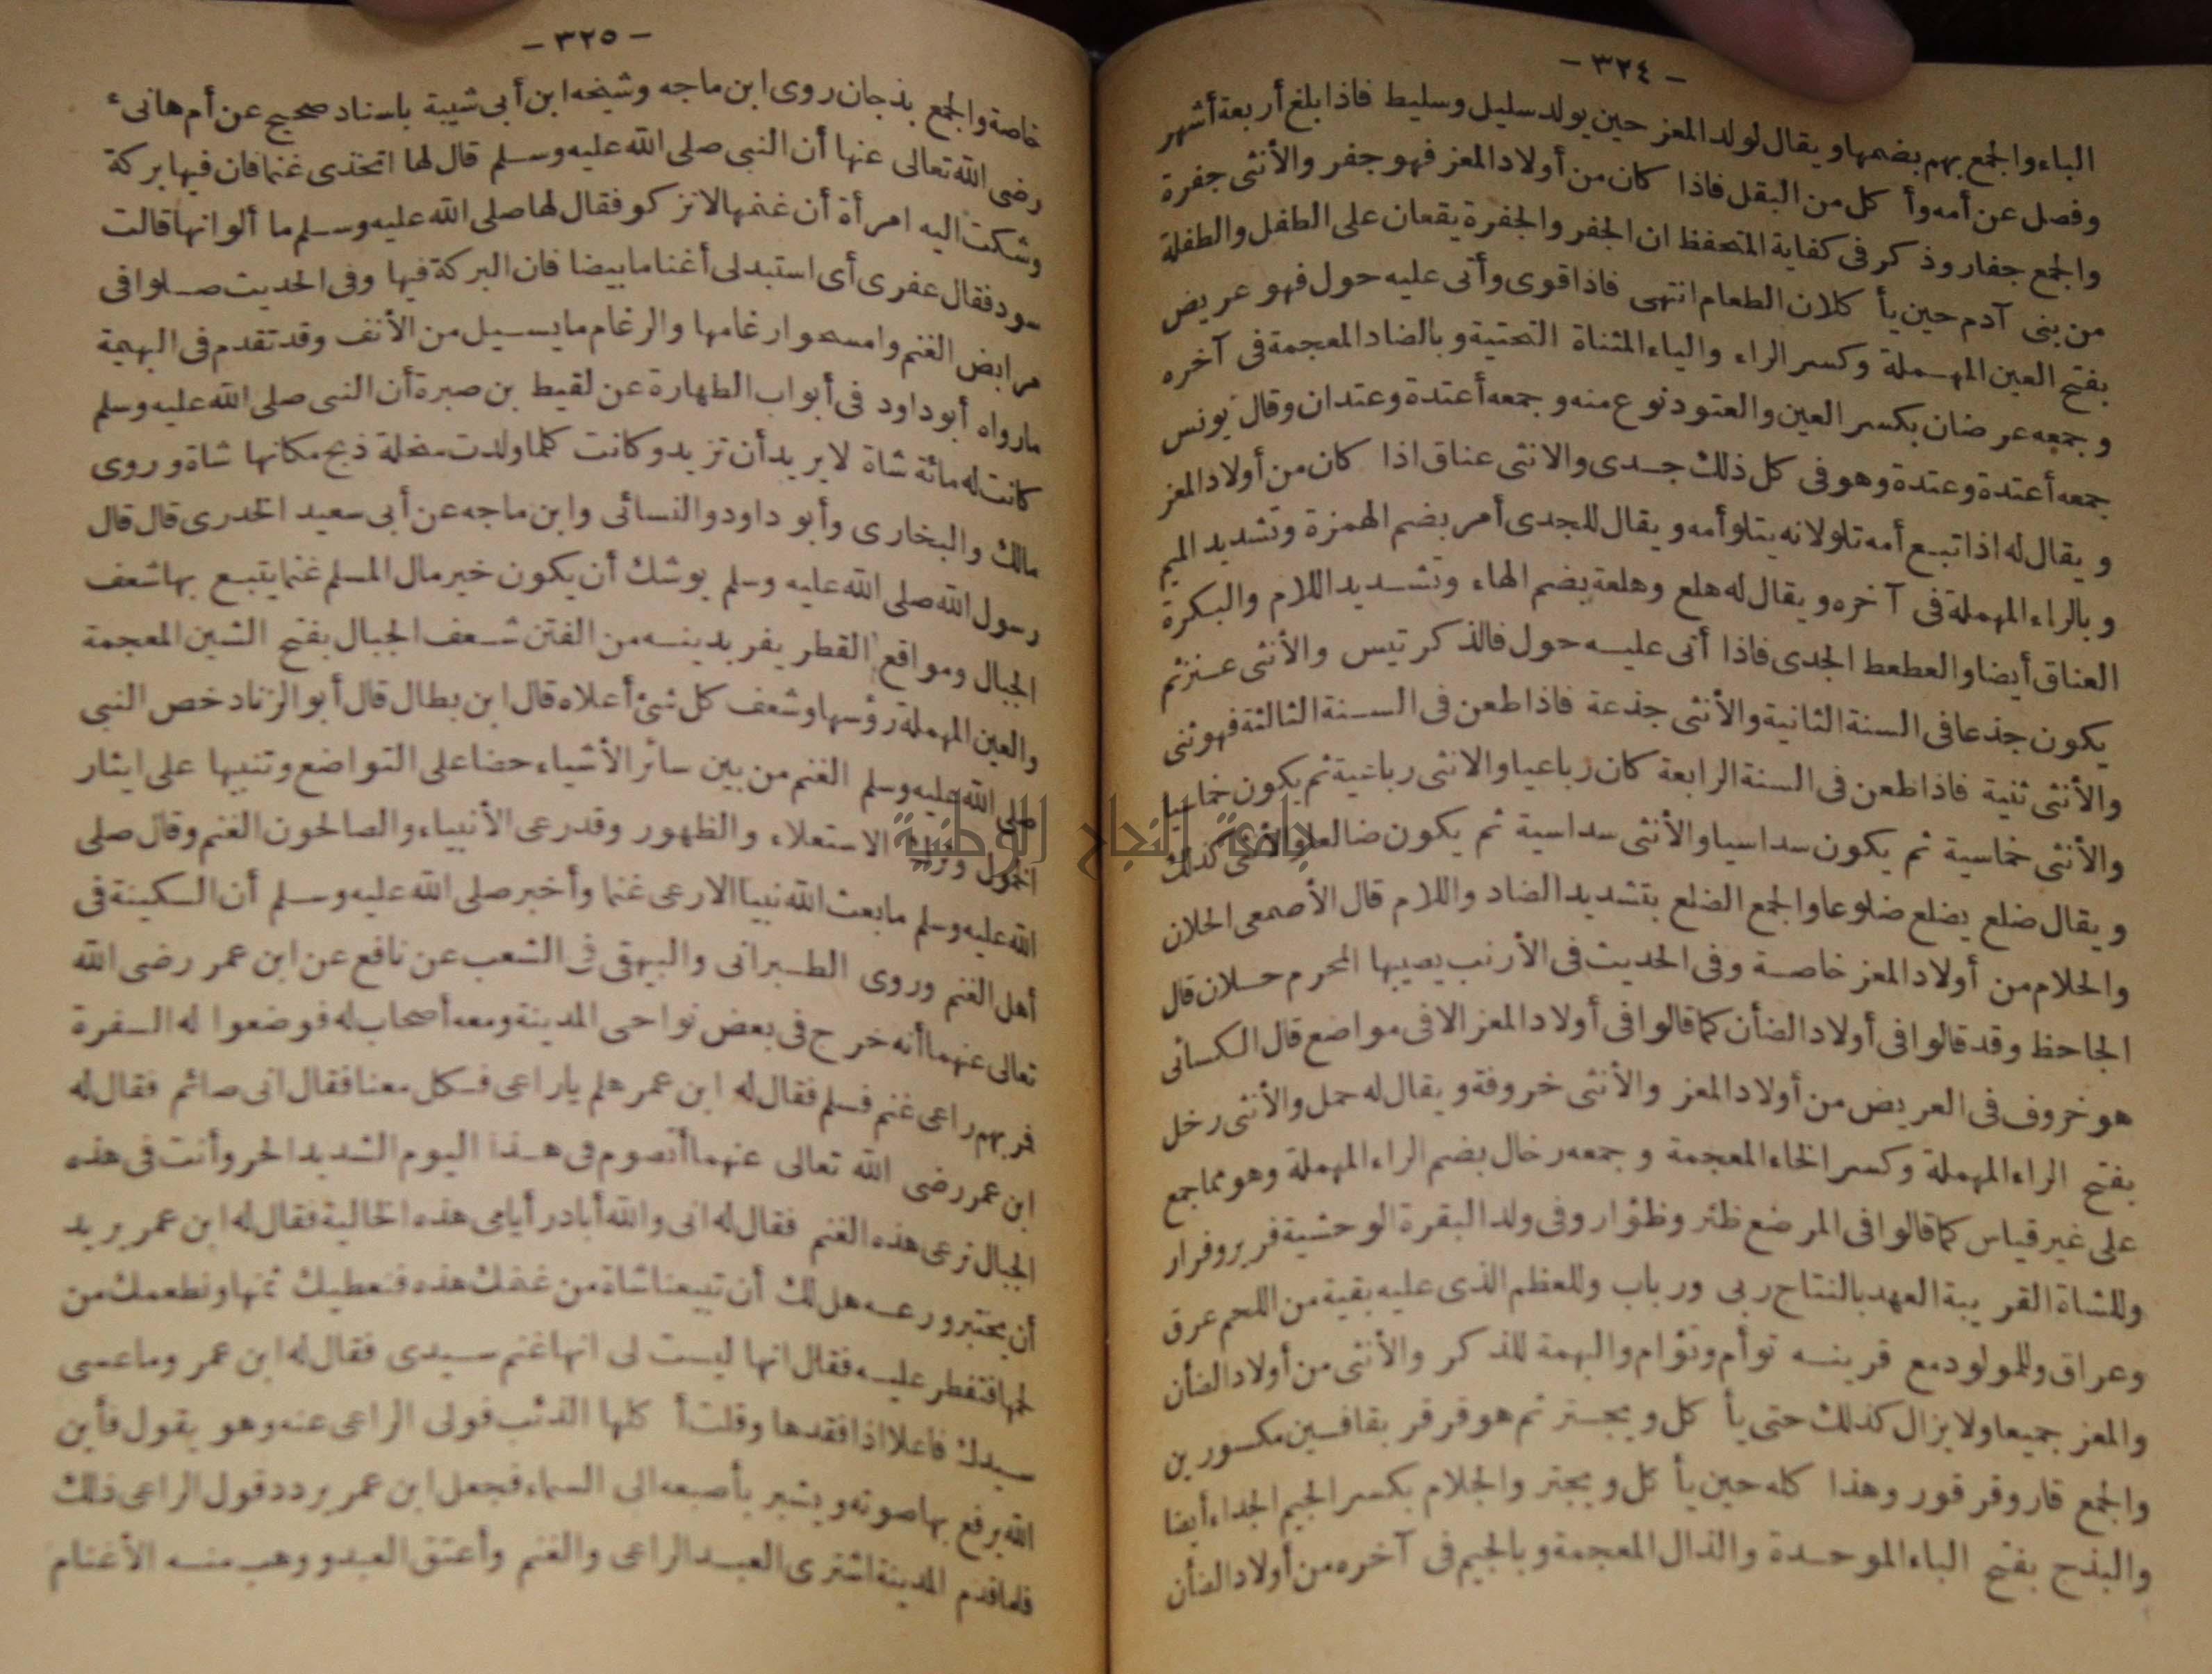 - ٣٢٤ -
الباء والجمع بهم بضمها ويقال لولد المعز حين يولد سليل وسليط فاذا بلغ أربعة أشهر
وفصل عن أمه وأكل من البقل فاذا كان من أولاد المعز فهو جفر والأنثى جفرة
والجمع جفار وذكر فى كفاية المتحفظ ان الجفر والجفرة يقعان على الطفل والطفلة
من بنى آدم حين يأكلان الطعام انتهى فاذا قوى وأتى عليه حول فهو عريض
بفتح العين المهملة وكسر الراء والياء المثناة التحتية وبالضاد المعجمة فى آخره
وجمعه عرضان بكسر العين والعتود نوع منه وجمعه أعتدة وعتدان وقال يونس
جمعه أعتدة وعتدة وهو فى كل ذلك جدى والانثى عناق اذا كان من أولاد المعز
ويقال له اذا تبع أمه تلو لانه يتلو أمه ويقال للجدى أمر بضم الهمزة وتشديد الميم
وبالراء المهملة فى آخره ويقال له هلع وهلعة بضم الهاء وتشديد اللام والبكرة
العناق أيضا والعطعط الجدى فاذا أتى عليه حول فالذكر تيس والأنثى عنز ثم
يكون جذعا فى السنة الثانية والأنثى جذعة فاذا طعن فى السنة الثالثة فهو ثنى
والأنثى ثنية فاذا طعن فى السنة الرابعة كان رباعيا والانثى رباعية ثم يكون خماسيا
والأنثى خماسية ثم يكون سداسيا والأنثى سداسية ثم يكون ضالعا والأنثى كذلك
ويقال ضلع يضلع ضلوعا والجمع الضلع بتشديد الضاد واللام قال الأصمعى الحلان
والحلام من أولاد المعز خاصة وفى الحديث فى الأرنب يصيبها المحرم حلان قال
الجاحظ وقد قالوا فى أولاد الضأن كما قالوا فى أولاد المعز الا فى مواضع قال الكسائى
هو خروف فى العريض من أولاد المعز والأنثى خروفة ويقال له حمل والأنثى رخل
بفتح الراء المهملة وكسر الخاء المعجمة وجمعه رخال بضم الراء المهملة وهو مما جمع
على غير قياس كما قالوا فى المرضع ظئر وظؤار وفى ولد البقرة الوحشية فرير وفرار
وللشاة القريبة العهد بالنتاج ربى ورباب وللعظم الذى عليه بقية من اللحم عرق
وعراق وللمولود مع قرينه توأم وتؤام والبهمة للذكر والأنثى من أولاد الضأن
والمعز جميعا ولا يزال كذلك حتى يأكل ويجتر ثم هو قرقر بقافين مكسورين
والجمع قار وقرقور وهذا كله حين يأكل ويجتر والجلام بكسر الجيم الجداء أيضا
والبذج بفتح الباء الموحدة والذال المعجمة وبالجيم فى آخره من أولاد الضأن
- ٣٢٥ -
خاصة والجمع بذجان روى ابن ماجه وشيخه ابن أبى شيبة باسناد صحيح عن أم هانىء
رضى الله تعالى عنها أن النبى صلى الله عليه وسلم قال لها اتخذى غنما فان فيها بركة
وشكت اليه امرأة أن غنمها لا تزكو فقال لها صلى الله عليه وسلم ما ألوانها قالت
سود فقال عفرى أى استبدلى أغناما بيضا فان البركة فيها وفى الحديث صلوا فى
مرابض الغنم وامسحوا رغامها والرغام ما يسيل من الأنف وقد تقدم فى البهيمة
مارواه أبو داود فى أبواب الطهارة عن لقيط بن صبرة أن النبى صلى الله عليه وسلم
كانت له مائة شاة لا يريد أن تزيد وكانت كلما ولدت سخلة ذبح مكانها شاة وروى
مالك والبخارى وأبو داود والنسائى وابن ماجه عن أبى سعيد الخدرى قال قال
رسول الله صلى الله عليه وسلم يوشك أن يكون خير مال المسلم غنما يتبع بها شعف
الجبال ومواقع القطر يفر بدينه من الفتن شعف الجبال بفتح الشين المعجمة
والعين المهملة رؤسها وشعف كل شئ أعلاه قال ابن بطال قال أبو الزناد خص النبى
صلى الله عليه وسلم الغنم من بين سائر الأشياء حضا على التواضع وتنبيها على ايثار
الخمول وترك الاستعلاء والظهور وقد رعى الأنبياء والصالحون الغنم وقال صلى
الله عليه وسلم ما بعث الله نبيا الا رعى غنما وأخبر صلى الله عليه وسلم أن السكينة فى
أهل الغنم وروى الطبرانى والبيهقى فى الشعب عن نافع عن ابن عمر رضى الله
تعالى عنهما أنه خرج فى بعض نواحى المدينة ومعه أصحاب له فوضعوا له السفرة
فمر بهم راعى غنم فسلم فقال له ابن عمر هلم ياراعى فكل معنا فقال انى صائم فقال له
ابن عمر رضى الله تعالى عنهما أتصوم فى هذا اليوم الشديد الحر وأنت فى هذه
الجبال ترعى هذه الغنم فقال له انى والله أبادر أيامى هذه الخالية فقال له ابن عمر يريد
أن يختبر ورعه هل لك أن تبيعنا شاة من غنمك هذه فنعطيك ثمنها ونطعمك من
لحمها فتفطر عليه فقال انها ليست لى انها غنم سيدى فقال له ابن عمر وما عسى
سيدك فاعلا اذا فقدها وقلت أكلها الذئب فولى الراعى عنه وهو يقول فأين
الله يرفع بها صوته ويشير بأصبعه الى السماء فجعل ابن عمر يردد قول الراعى ذلك
فلما قدم المدينة اشترى العبد الراعى والغنم وأعتق العبد ووهب منه الأغنام
جامعة النجاح الوطنية